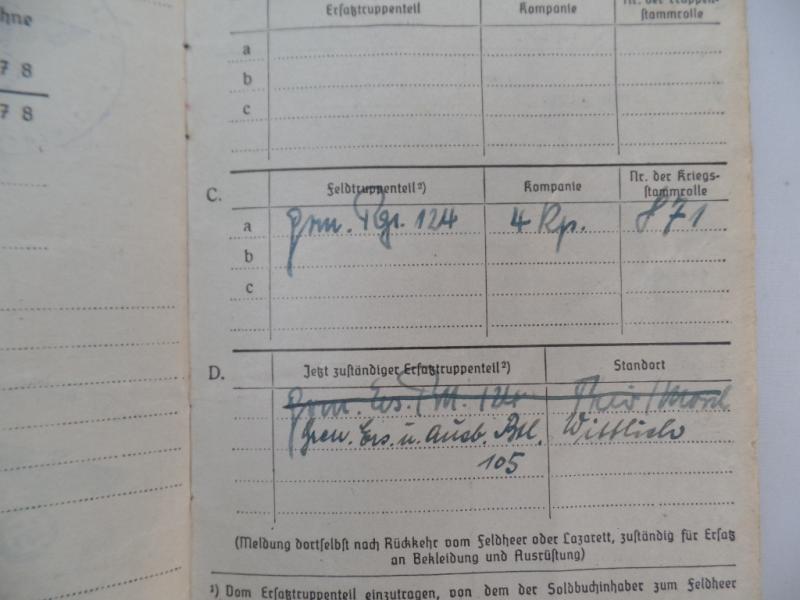 hne
78
78
Ersatztruppenteil Kompanie Nr. der Truppen-
stammrolle
a
b
c
C. Feldtruppenteil²) Kompanie Nr. der Kriegs-
stammrolle
a Rgt. 124 4 Kp. 871
b
c
D. Jetzt zuständiger Ersatztruppenteil²) Standort
Ers. 124
Gren. Ers. u. Ausb. Btl. Wittlich
105
(Meldung dortselbst nach Rückkehr vom Feldheer oder Lazarett, zuständig für Ersatz
an Bekleidung und Ausrüstung)
¹) Vom Ersatztruppenteil einzutragen, von dem der Soldbuchinhaber zum Feldheer